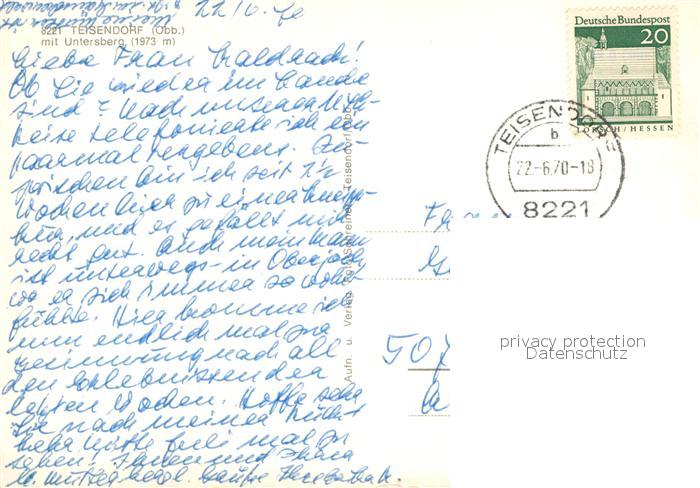 22/6. 70
8221 TEISENDORF (Obb.)
mit Untersberg, (1973 m)
Liebe Frau Waldrach!
Ob Sie wieder im Lande
sind? Nach unserer Rück-
reise telefonierte ich ein
paarmal vergebens. In-
zwischen bin ich seit 1½
Wochen hier zu einer Kneipp-
kur, und es gefällt mir
recht gut. Auch mein Mann
ist unterwegs - in Oberjoch
wo er sich immer so wohl
fühlte. Hier komme ich
nun endlich mal zur
Besinnung nach all
den Erlebnissen der
letzten Wochen. Hoffe sehr
Sie nach meiner Rückkehr
Mitte Juli mal zu
sehen! Ihnen und Ihrer
l. Mutter herzl. Grüße
Aufn. u. Verlag Foto-Schreiner, Teisendorf/Obb.
Deutsche Bundespost
20
LORSCH/HESSEN
TEISENDORF
b
22.-6.70-18
8221
507
privacy protection
Datenschutz